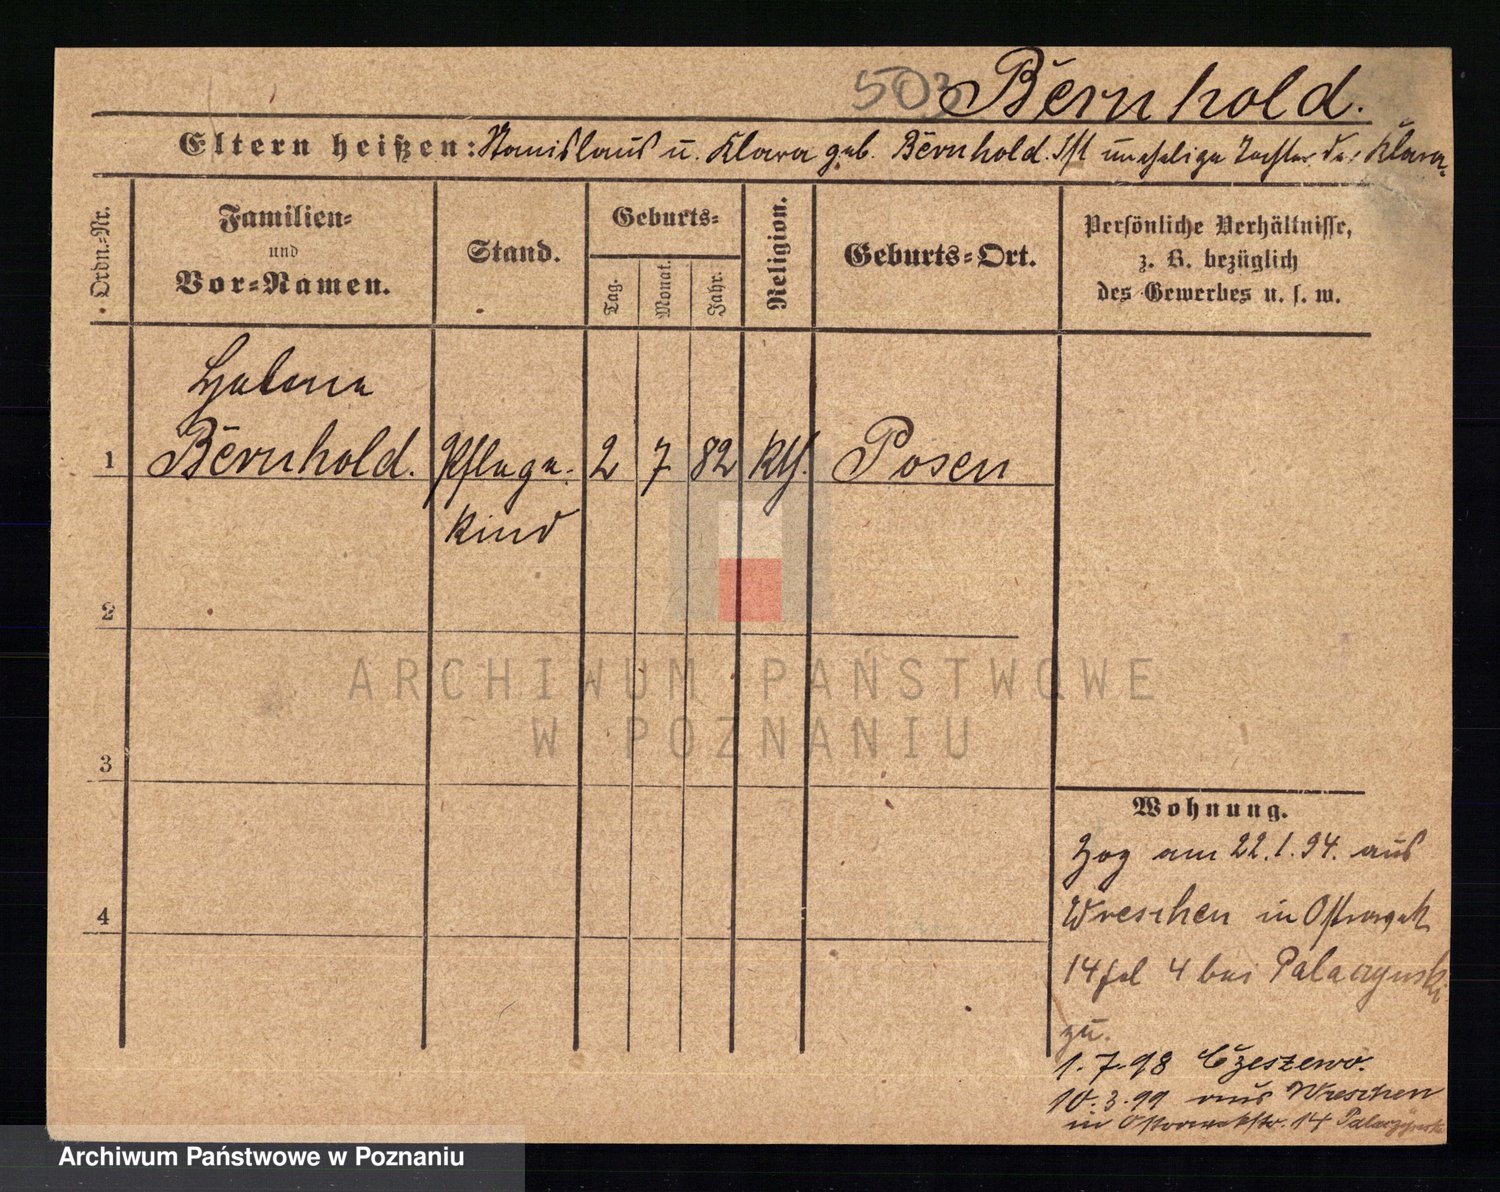 503 Bernhold.
Eltern heißen: Stanislaus u. Klara geb. Bernhold. Ist uneheliche Tochter der Klara.
Ordn.-Nr.
Familien-
und
Vor-Namen.
Stand.
Geburts-
Tag.
Monat.
Jahr.
Religion.
Geburts-Ort.
Persönliche Verhältnisse,
z. B. bezüglich
des Gewerbes u. s. w.
Helena
1 Bernhold. Pflege- 2 7 82 kth. Posen
kind
2
ARCHIWUM PAŃSTWOWE
W POZNANIU
3
Wohnung.
Zog am 22.1.94. aus
4
Wreschen in Ostrowek
14 4 bei Palaczynski
zu.
1.7.98 Czeszewo.
10.3.99 aus Wreschen
in Ostrowekstr. 14 Palaczynski
Archiwum Państwowe w Poznaniu